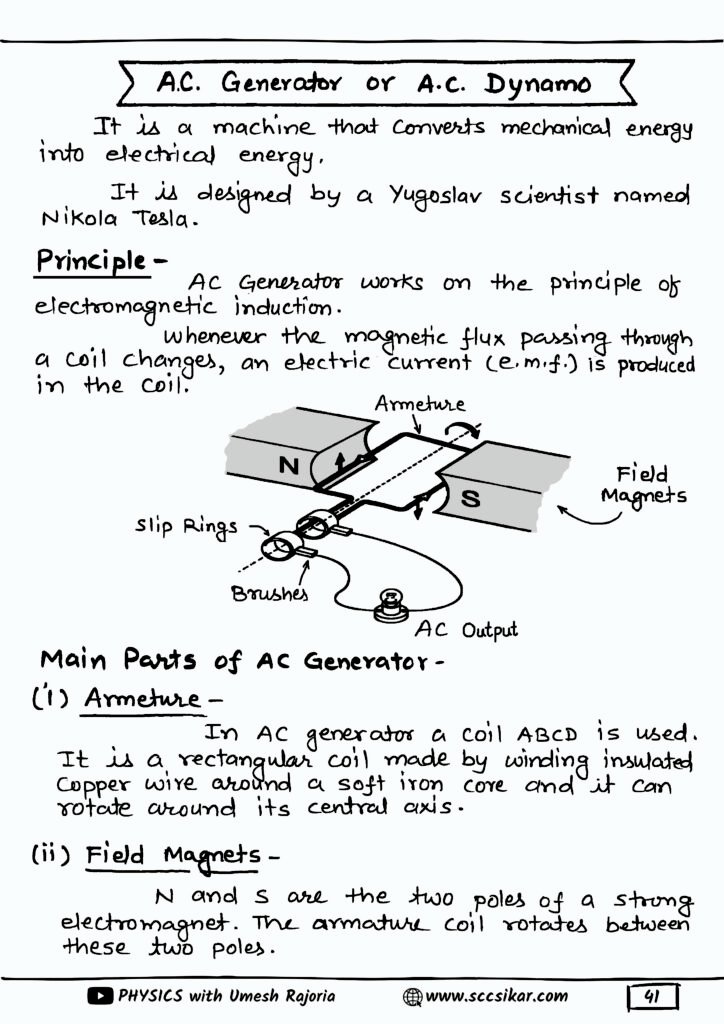 A.C. Generator or A.C. Dynamo
It is a machine that converts mechanical energy
into electrical energy.
It is designed by a Yugoslav scientist named
Nikola Tesla.
Principle -
AC Generator works on the principle of
electromagnetic induction.
Whenever the magnetic flux passing through
a coil changes, an electric current (e.m.f.) is produced
in the coil.
Armeture
N
S
Field
Magnets
Slip Rings
Brushes
AC Output
Main Parts of AC Generator -
(i) Armeture -
In AC generator a coil ABCD is used.
It is a rectangular coil made by winding insulated
copper wire around a soft iron core and it can
rotate around its central axis.
(ii) Field Magnets -
N and S are the two poles of a strong
electromagnet. The armature coil rotates between
these two poles.
PHYSICS with Umesh Rajoria
www.sccsikar.com
41